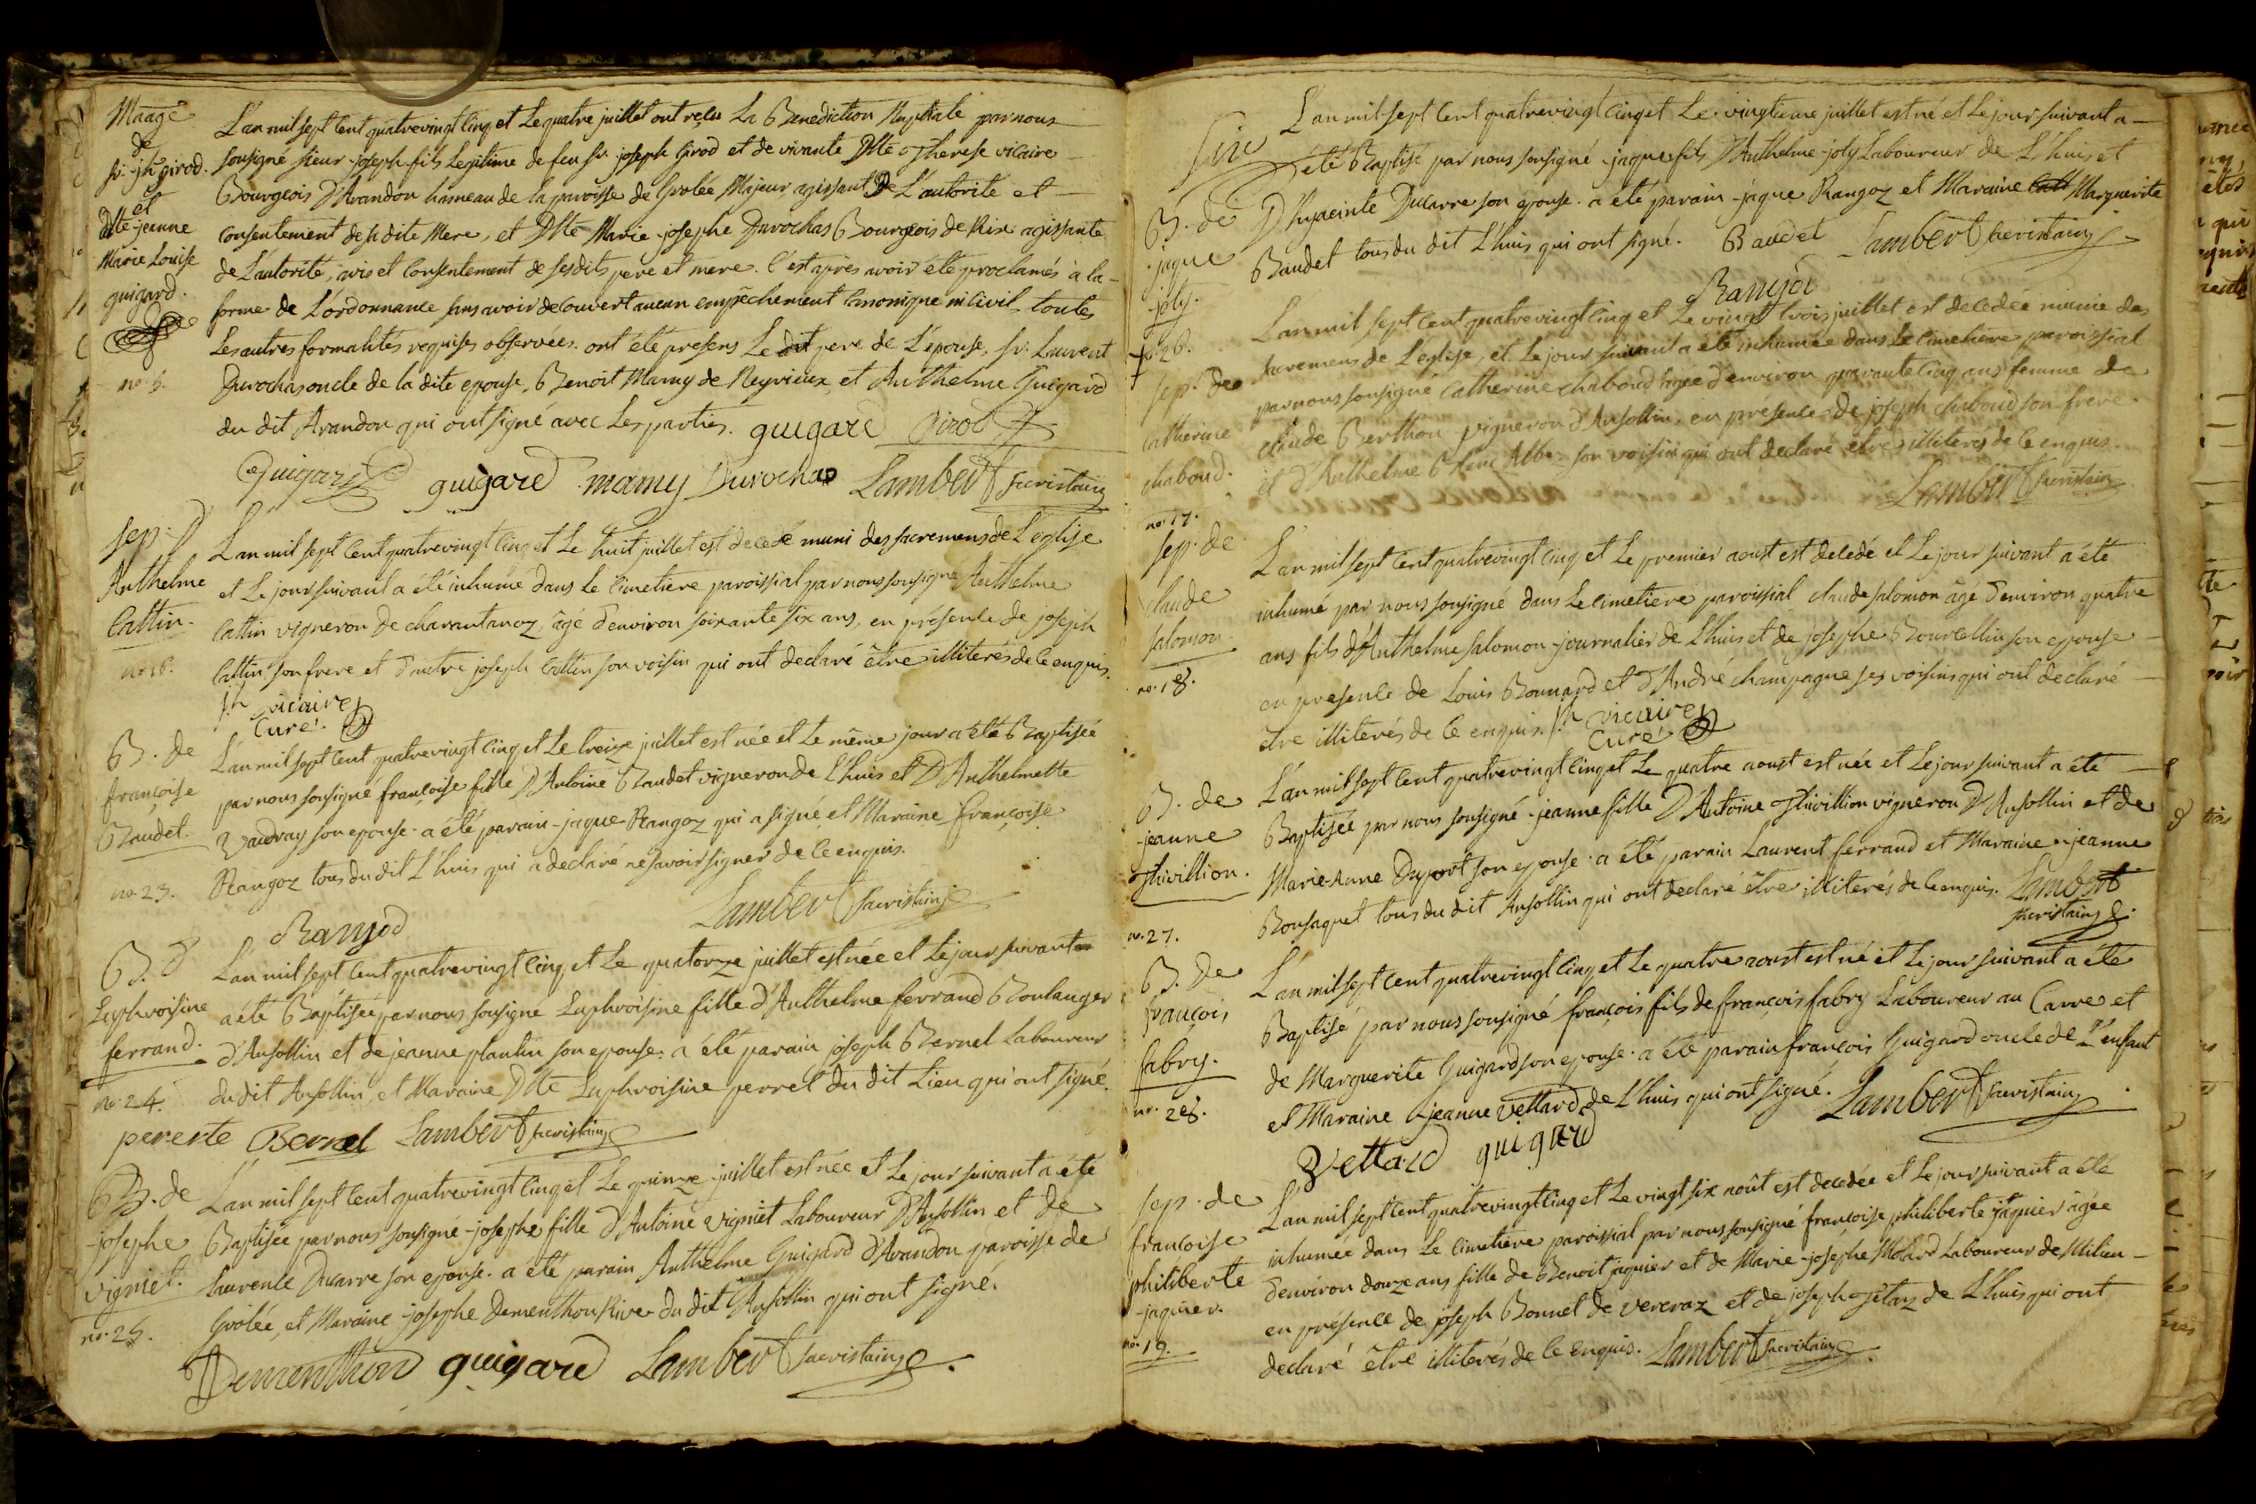 Maage
de
Sr. jph girod.
et
Dlle jeanne
Marie Louise
guigard.
no. 5.
L'an mil sept cent quatrevingt cinq et Le quatre juillet ont reçu La Benediction Nuptiale par nous
sousigné sieur joseph fils Legitime de feu Sr. joseph Girod et de vivante Dlle Therese vicaire
Bourgeois D'Arandon hameau de la paroisse de Grolée Majeur agissant De L'autorité et
consentement de sa dite Mere, et Dlle Marie josephe Durochas Bourgeois de Rix agissante
de L'autorité, avis et consentement de ses dits pere et mere. C'est après avoir été proclamés à la
forme de L'ordonnance sans avoir découvert aucun empêchement canonique ni civil, toutes
Les autres formalités requises observées. ont été presens Le dit pere de L'épouse, Sr. Laurent
Durochas oncle de la dite epouse, Benoit Mamy de Neyrieux et Anthelme Guigard
du dit Arandon qui ont signé avec Les parties. guigard Girod
Guigard guigard mamy Durochas Lambert sacristain
sep. d
Anthelme
Cattin.
no 16.
L'an mil sept cent quatrevingt cinq et Le huit juillet est decedé muni des sacremens de L'eglise
et Le jour suivant a été inhumé dans Le cimetiere paroissial par nous sousigné Anthelme
Cattin vigneron de charantanoz, âgé d'environ soixante six ans, en présence de joseph
Cattin son frere et d'autre joseph Cattin son voisin qui ont declaré être illiterés de ce enquis.
jh vicaire
Curé.
B. de
françoise
Baudet.
no 23.
L'an mil sept cent quatrevingt cinq et Le treize juillet est née et Le même jour a été Baptisée
par nous sousigné françoise fille D'Antoine Baudet vigneron de L'huis et D'Anthelmette
Vaudray son epouse. a été parain jaque Rangoz qui a signé et Maraine françoise
Rangoz tous du dit L'huis qui a declaré ne savoir signer de ce enquis.
Ranjod Lambert sacristain
B. d
Euphroisine
ferrand.
no 24.
L'an mil sept cent quatrevingt cinq et Le quatorze juillet est née et Le jour suivant
a été Baptisée par nous sousigné Euphroisine fille d'Anthelme ferrand Boulanger
d'Ansollin et de jeanne plantin son epouse. a été parain joseph Bernel Laboureur
du dit Ansollin, et Maraine Dlle Euphroisine perret du dit Lieu qui ont signé.
pererte Bernel Lambert sacristain
B. de
josephe
vigniet.
no. 25.
L'an mil sept cent quatrevingt cinq et Le quinze juillet est née et Le jour suivant a été
Baptisée par nous sousigné josephe fille D'Antoine vigniet Laboureur D'Ansollin et de
Laurence Ducarre son epouse. a été parain Anthelme Guigard d'Arandon paroisse de
Grolée, et Maraine josephe Dementhon Rive du dit Ansollin qui ont signé.
Dementhon guigard Lambert sacristain
B. de
jaque
joly.
no. 26.
L'an mil sept cent quatrevingt cinq et Le vingtieme juillet est né et Le jour suivant a
été Baptisé par nous sousigné jaque fils D'Anthelme joly Laboureur de L'huis et
D'hyacinte Ducarre son epouse. a été parain jaque Rangoz et Maraine Marguerite
Baudet tous du dit L'huis qui ont signé. Baudet Lambert sacristain
Ranjod
sep. de
catherine
chaboud.
no. 17.
L'an mil sept cent quatrevingt cinq et Le vingt trois juillet est decedée munie des
sacremens de L'église, et Le jour suivant a été inhumée dans Le cimetiere paroissial
par nous sousigné catherine chaboud âgée d'environ quarante cinq ans femme de
claude Berthon vigneron d'Ansollin, en présence de joseph chaboud son frere
et d'Anthelme son voisin qui ont declaré être illiterés de ce enquis.
Lambert sacristain
sep. de
claude
salomon.
no. 18.
L'an mil sept cent quatrevingt cinq et Le premier aoust est decedé et Le jour suivant a été
inhumé par nous sousigné dans Le cimetiere paroissial claude salomon âgé d'environ quatre
ans fils d'Anthelme salomon journalier de L'huis et de josephe Bourcellin son epouse
en presence de Louis Bonnard et d'André champagne ses voisins qui ont declaré
être illiterés de ce enquis. jh vicaire
Curé
B. de
jeanne
Thivillion.
no. 27.
L'an mil sept cent quatrevingt cinq et Le quatre aoust est née et Le jour suivant a été
Baptisée par nous sousigné jeanne fille D'Antoine Thivillion vigneron D'Ansollin et de
Marie Anne Duport son epouse. a été parain Laurent ferrand et Maraine jeanne
Bonsaquet tous du dit Ansollin qui ont declaré être illiterés de ce enquis. Lambert
sacristain
B. de
françois
fabry.
no. 28.
L'an mil sept cent quatrevingt cinq et Le quatre aoust est né et Le jour suivant a été
Baptisé par nous sousigné françois fils de françois fabry Laboureur au Carre et
de Marguerite Guigard son epouse. a été parain françois Guigard oncle de L'enfant
et Maraine jeanne Vettard de L'huis qui ont signé. Lambert sacristain
Vettard guigard
sep. de
francoise
philiberte
jaquier.
no. 19.
L'an mil sept cent quatrevingt cinq et Le vingt six août est decedée et Le jour suivant a été
inhumée dans Le cimetiere paroissial par nous sousigné françoise philiberte jaquier âgée
d'environ douze ans fille de Benoit jaquier et de Marie josephe Molard Laboureur de Milieu
en présence de joseph Bonnet de vercraz et de joseph de L'huis qui ont
declaré être illiterés de ce enquis. Lambert sacristain